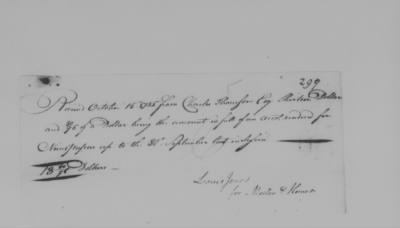 299
Receiv'd October 16 1785 from Charles Thomson Esq Thirteen Dollars
and of a Dollar being the amount in full of an acct. rendered for
News Papers up to the September last inclusive
13 Dollars
Lewis Jones
for